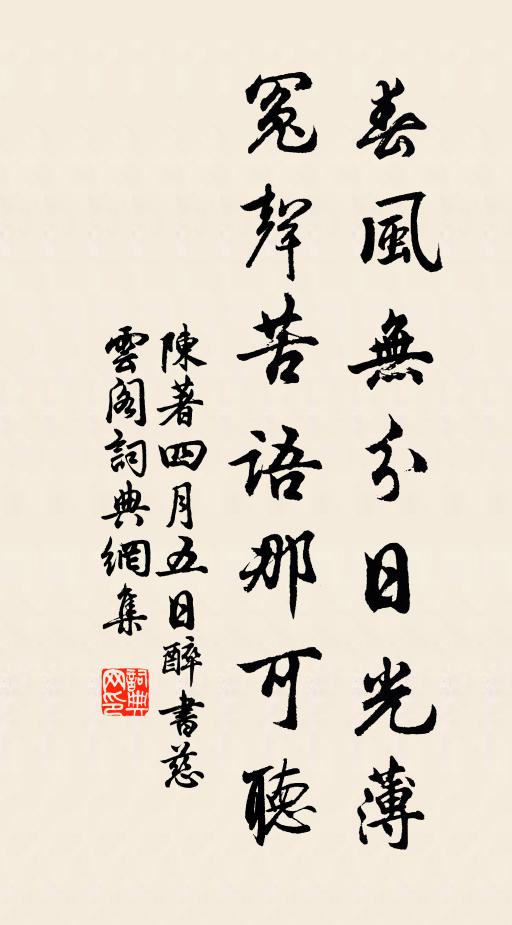 春風無分日光薄
冤聲苦語那可聽
陳著四月五日醉書慈
雲閣詞典網集
詞典网印